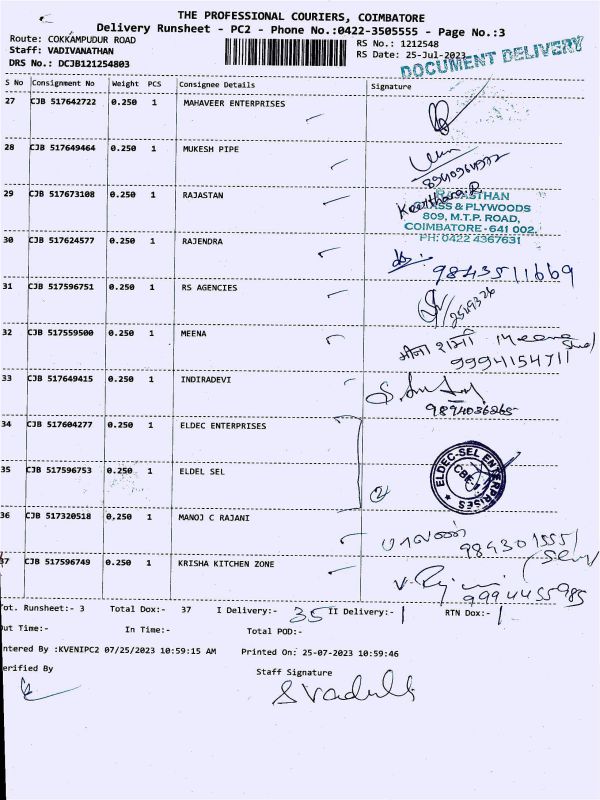 THE PROFESSIONAL COURIERS, COIMBATORE
Delivery Runsheet - PC2 - Phone No.:0422-3505555 - Page No.:3
Route: COKKAMPUDUR ROAD
RS No.: 1212548
Staff: VADIVANATHAN
RS Date: 25-Jul-2023
DRS No.: DCJB121254803
DOCUMENT DELIVERY
S No Consignment No Weight PCS Consignee Details Signature
27 CJB 517642722 0.250 1 MAHAVEER ENTERPRISES
28 CJB 517649464 0.250 1 MUKESH PIPE
29 CJB 517673108 0.250 1 RAJASTAN
Keerthana.R
RAJASTHAN
GLASS & PLYWOODS
809, M.T.P. ROAD,
COIMBATORE - 641 002.
PH: 0422 4367631
30 CJB 517624577 0.250 1 RAJENDRA
9843511669
31 CJB 517596751 0.250 1 RS AGENCIES
32 CJB 517559500 0.250 1 MEENA
मीना शर्मा Meena
9994154711
33 CJB 517649415 0.250 1 INDIRADEVI
9894036265
34 CJB 517604277 0.250 1 ELDEC ENTERPRISES
35 CJB 517596753 0.250 1 ELDEL SEL
2
ELDEC-SEL ENTERPRISES
CBE-
36 CJB 517320518 0.250 1 MANOJ C RAJANI
9843015551
37 CJB 517596749 0.250 1 KRISHA KITCHEN ZONE
9994455985
Tot. Runsheet:- 3 Total Dox:- 37 I Delivery:- 35 II Delivery:- 1 RTN Dox:- 1
Out Time:- In Time:- Total POD:-
Entered By :KVENIPC2 07/25/2023 10:59:15 AM Printed On: 25-07-2023 10:59:46
Verified By Staff Signature